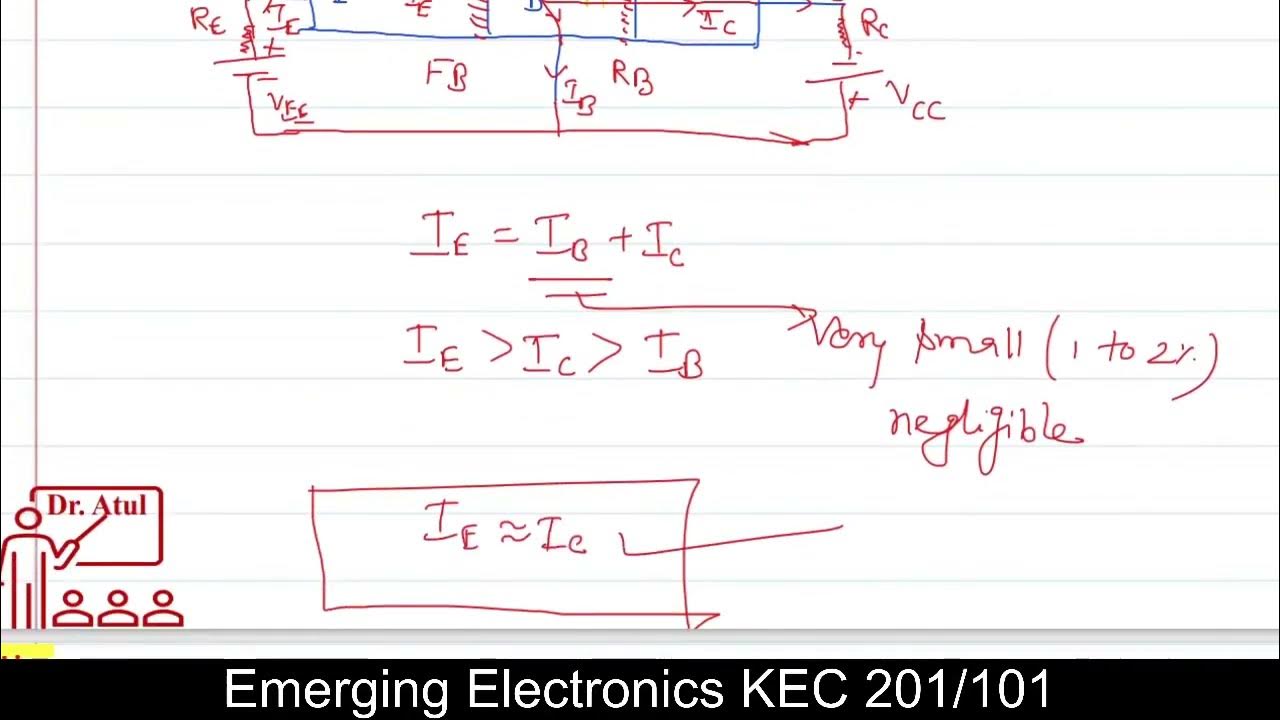 R_E I_E I_E B I_C R_C
+ -
- F_B R_B
I_B + V_CC
V_EE
I_E = I_B + I_C
I_E > I_C > I_B
Very small (1 to 2%)
negligible
I_E ≈ I_C
Dr. Atul
Emerging Electronics KEC 201/101